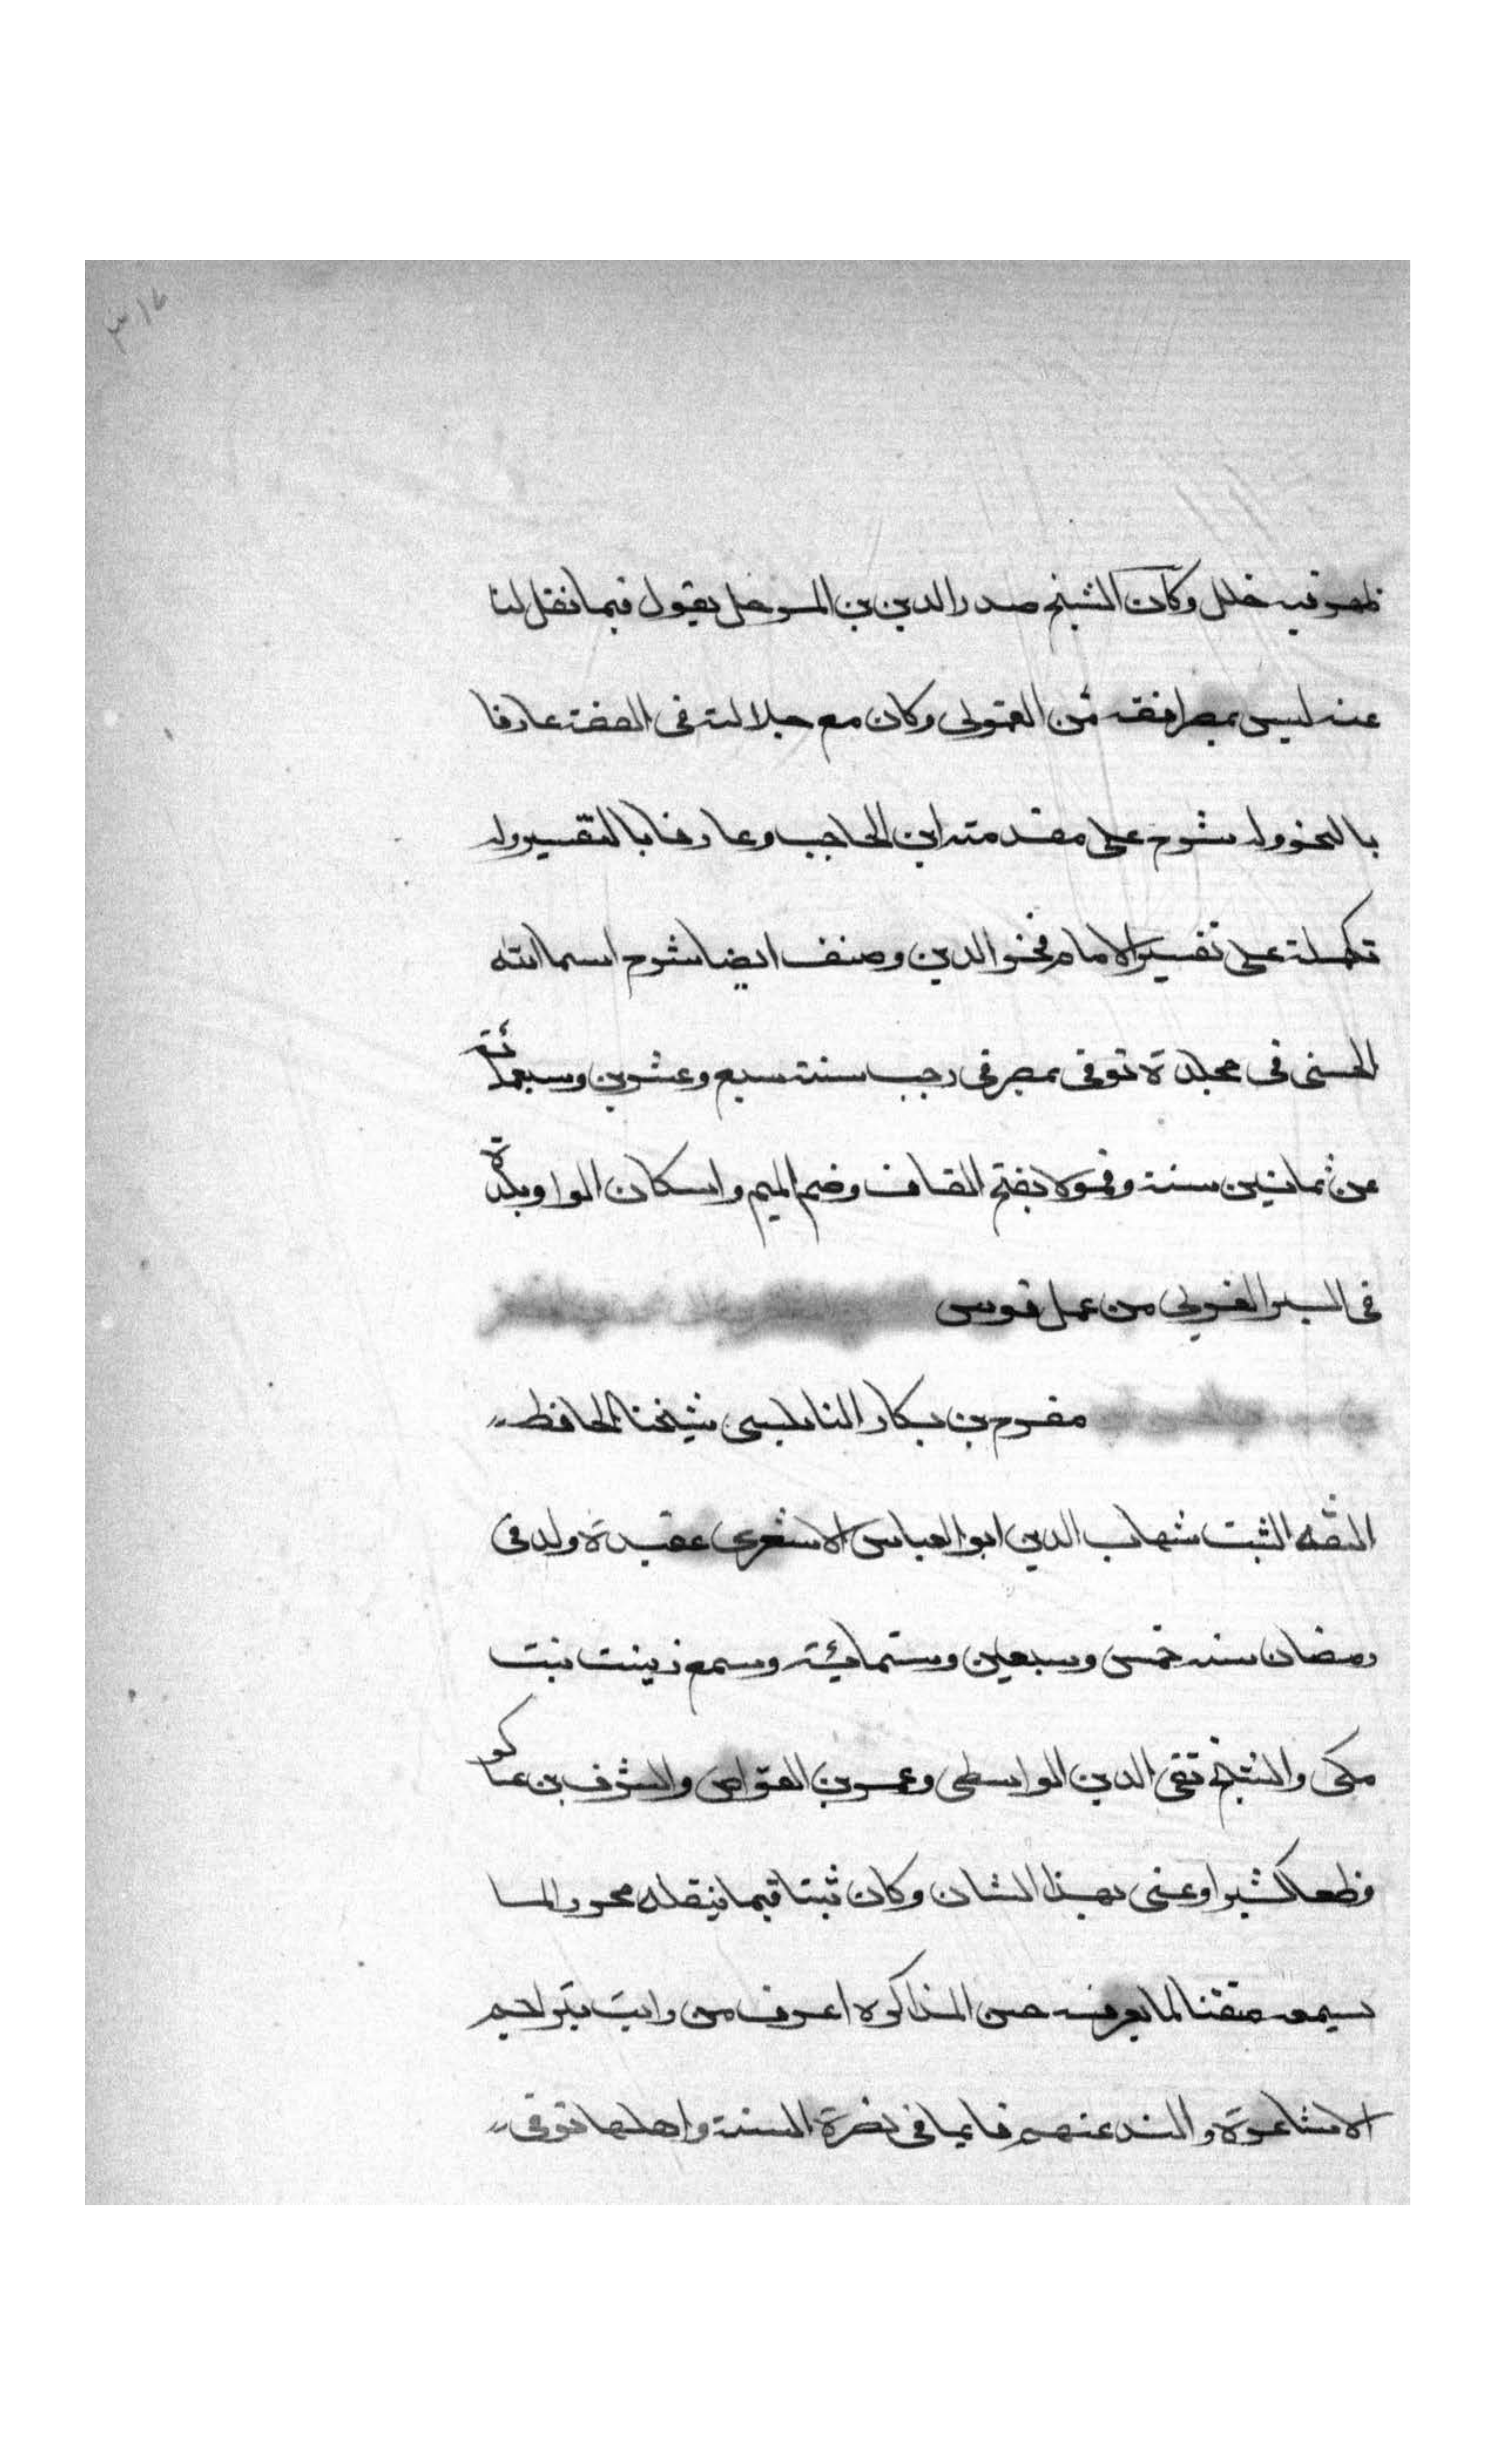 ٣١٤
ظهر فيه خلل وكان الشيخ صدر الدين بن المرحل يقول فيما نقل لنا
عنه ليس بمصر افقه من القمولى وكان مع جلالته فى الفقه عارفا
بالنحو وله شرح على مقدمته ابن الحاجب وعارفا بالتفسير وله
تكملة على تفسير الامام فخر الدين وصنف ايضا شرح اسما الله
الحسنى فى مجلدة توفى بمصر فى رجب سنة سبع وعشرين وسبعمائة
عن ثمانين سنة وقمولا بفتح القاف وضم الميم واسكان الواو بلدة
فى البر الغربى من عمل قوص
مفرح بن بكار النابلسى شيخنا الحافظ
الثقه الثبت شهاب الدين ابو العباس الاشعرى عقيدة ولد فى
رمضان سنه خمس وسبعين وستمائة وسمع زينت بنت
مكى والشيخ تقى الدين الواسطى وعمر بن القواص والشرف بن عساكر
وعنى بهذا الشان وكان ثبتا فيما ينقله محررا لما
يسمعه متقنا لما يعرفه حسن المذاكرة اعرف من رايت بتراجم
الاشاعرة والذب عنهم قايما فى نصرة السنة واهلها توفى